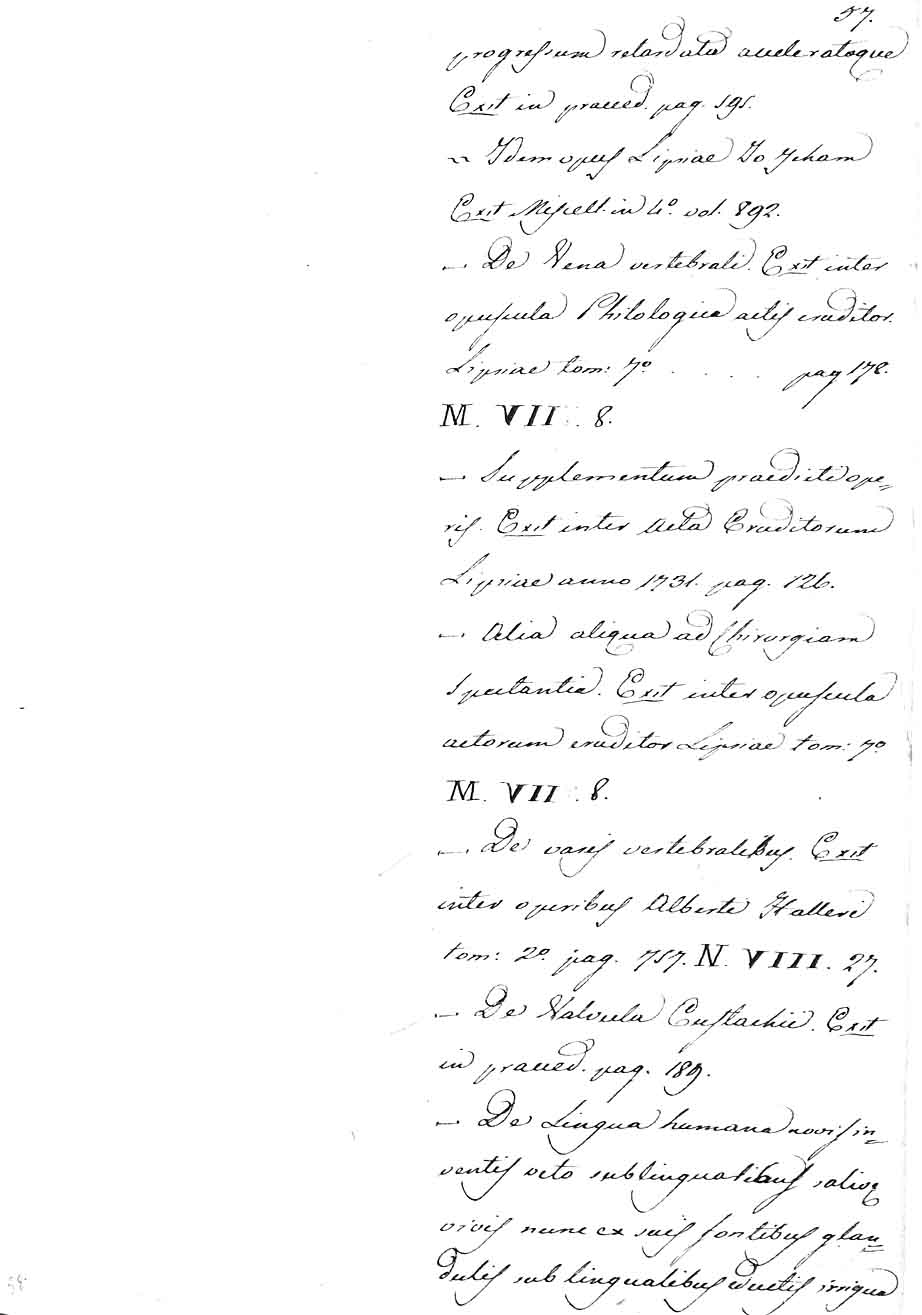 57.
progressum retardato acceleratoque
Exit in praeced. pag. 591.
~ Idem opus Lipsiae
Exit Miscell. in 4º. vol. 892.
— De Vena vertebrali. Exit inter
opuscula Philologica actis eruditor.
Lipsiae tom: 7º . . . . . pag 178.
M. VII. 8.
— Supplementum praedicti ope=
ris. Exit inter Acta Eruditorum
Lipsiae anno 1731. pag. 126.
— Alia aliqua ad Chirurgiam
spectantia. Exit inter opuscula
actorum eruditor Lipsiae tom: 7º
M. VII. 8.
— De vasis vertebralibus. Exit
inter operibus Alberti Halleri
tom: 2º. pag. 757. N. VIII. 27.
— De Valvula Eustachii. Exit
in praeced. pag. 189.
— De Lingua humana novis in=
ventis octo sublingualibus salivę
rivis nunc ex suis fontibus glan=
dulis sublingualibus eductis irrigua